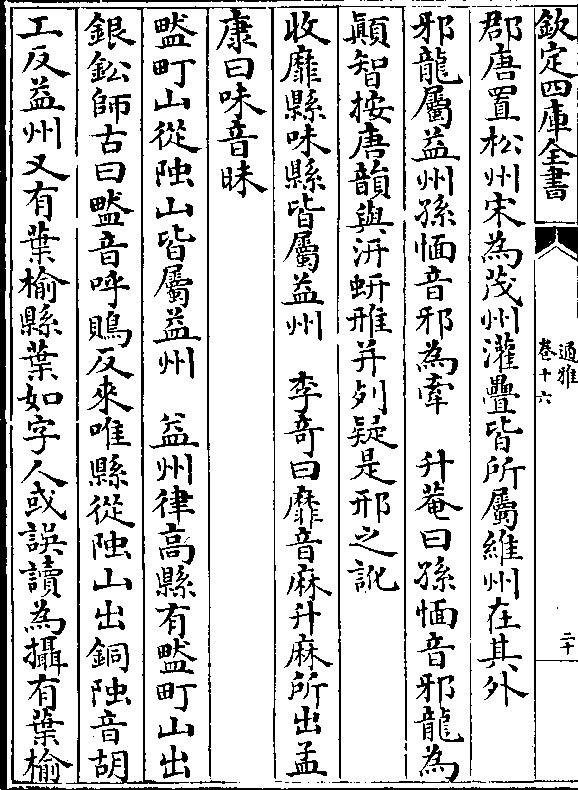 欽定四庫全書
通雅
卷十六
二十
郡唐置松州宋為茂州灌疊皆所屬維州在其外
邪龍屬益州孫愐音邪為䍧　升菴曰孫愐音邪龍為
顚智按唐韻與汧蚈雃并列疑是邢之訛
收靡縣味縣皆屬益州　李奇曰靡音麻升麻所出孟
康曰味音昧
𥁀町山從䧈山皆屬益州　益州律高縣有𥁀町山出
銀鈆師古曰𥁀音呼鵙反來唯縣從䧈山出銅䧈音胡
工反益州又有葉榆縣葉如字人或誤讀為攝有葉榆